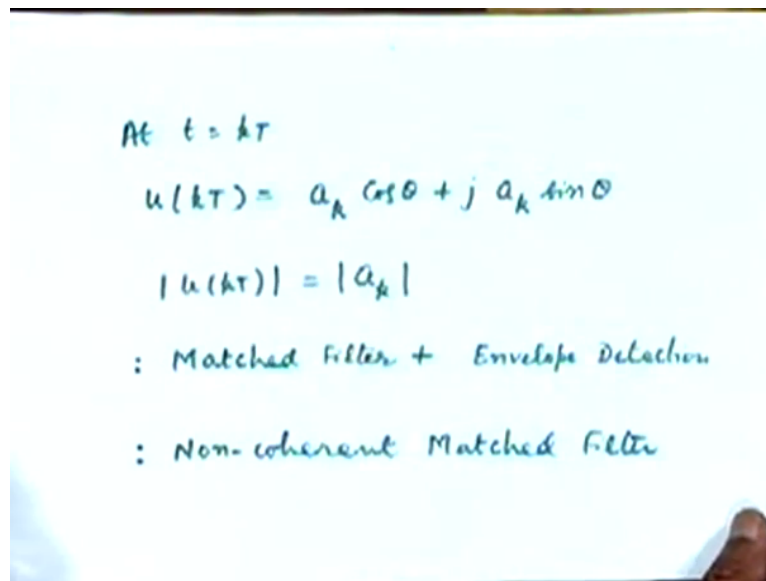 At t = kT
u(kT) = a_k Cosθ + j a_k sinθ
|u(kT)| = |a_k|
: Matched Filter + Envelope Detection
: Non-coherent Matched Filter